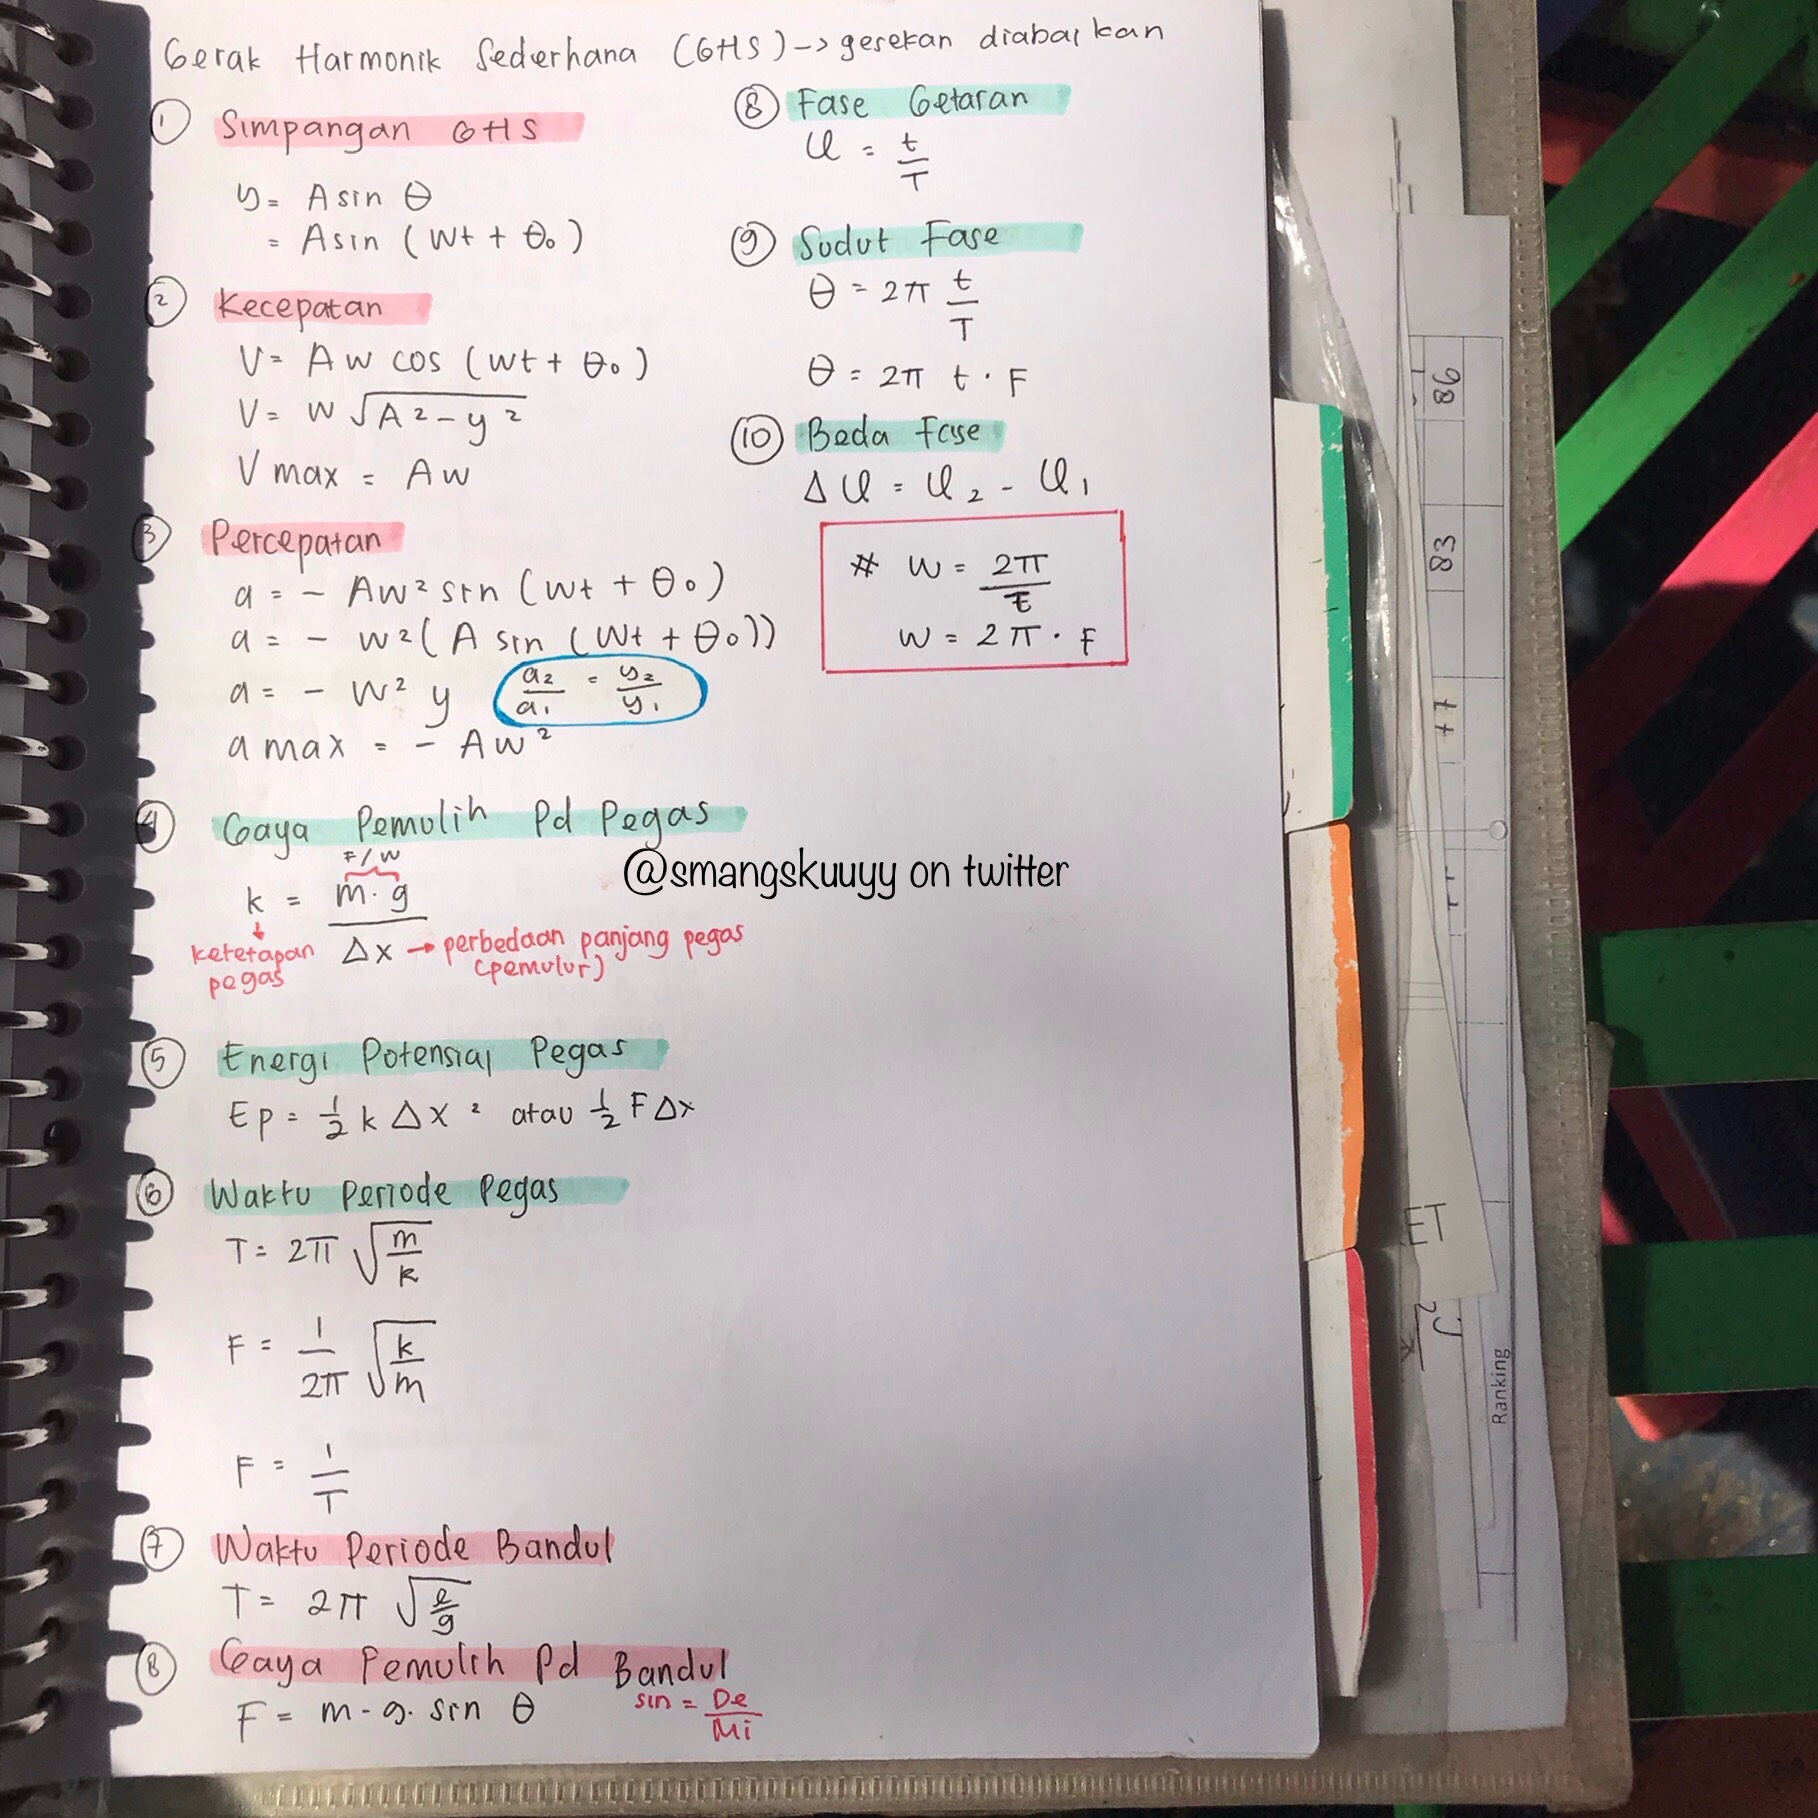 Gerak Harmonik Sederhana (GHS) -> gesekan diabaikan
① Simpangan GHS
y = A sin θ
= A sin (wt + θ₀)
② Kecepatan
V = A w cos (wt + θ₀)
V = w √(A² - y²)
V max = A w
③ Percepatan
a = - Aw² sin (wt + θ₀)
a = - w² (A sin (wt + θ₀))
a = - w² y    a₂/a₁ = y₂/y₁
a max = - Aw²
④ Gaya Pemulih Pd Pegas
F/W
k = m . g / Δx
ketetapan pegas
→ perbedaan panjang pegas
(pemulur)
⑤ Energi Potensial Pegas
Ep = ½ k Δx² atau ½ F Δx
⑥ Waktu Periode Pegas
T = 2π √(m/k)
F = 1/2π √(k/m)
F = 1/T
⑦ Waktu Periode Bandul
T = 2π √(l/g)
⑧ Gaya Pemulih Pd Bandul
F = m . g . sin θ    sin = De/Mi
⑧ Fase Getaran
φ = t/T
⑨ Sudut Fase
θ = 2π t/T
θ = 2π t . F
⑩ Beda Fase
Δφ = φ₂ - φ₁
* w = 2π/T
w = 2π . F
@smangskuuyy on twitter
98
83
++
ET
Ranking